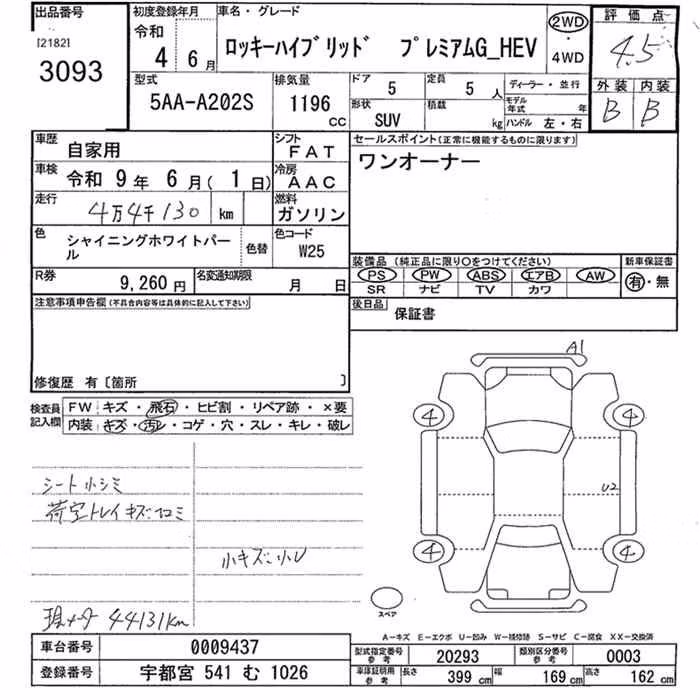 出品番号
[2182]
3093
初度登録年月
令和
4年 6月
車名・グレード
ロッキーハイブリッド プレミアムG_HEV
2WD
・
4WD
評価点
4.5
外装 内装
B B
型式
5AA-A202S
排気量
1196 CC
ドア 5
定員 5人
形状 SUV
積載 kg
ディーラー・並行
モデル年式 年
ハンドル 左・右
車歴 自家用
シフト FAT
車検 令和 9年 6月( 1日)
冷房 AAC
走行 4万4千130 km
燃料 ガソリン
色 シャイニングホワイトパール
色替
色コード W25
R券 9,260円
名変通知期限 月 日
セールスポイント(正常に機能するものに限ります)
ワンオーナー
装備品(純正品に限り○をつけてください)
PS PW ABS エアB AW
SR ナビ TV カワ
新車保証書
有・無
後日品 保証書
注意事項申告欄(不具合内容等は具体的に記入して下さい)
修復歴 有〔箇所 〕
検査員記入欄
FW キズ・飛石・ヒビ割・リペア跡・×要
内装 キズ・汚レ・コゲ・穴・スレ・キレ・破レ
シート小シミ
荷室トレイキズ
小キズ小U
現メータ 44131km
A1
4 4
U2
4 4
スペア
A-キズ E-エクボ U-凹み W-補修跡 S-サビ C-腐食 XX-交換済
車台番号 0009437
登録番号 宇都宮 541 む 1026
型式指定番号参考 20293
類別区分番号参考 0003
車庫証明用参考 長さ 399cm 幅 169cm 高さ 162cm